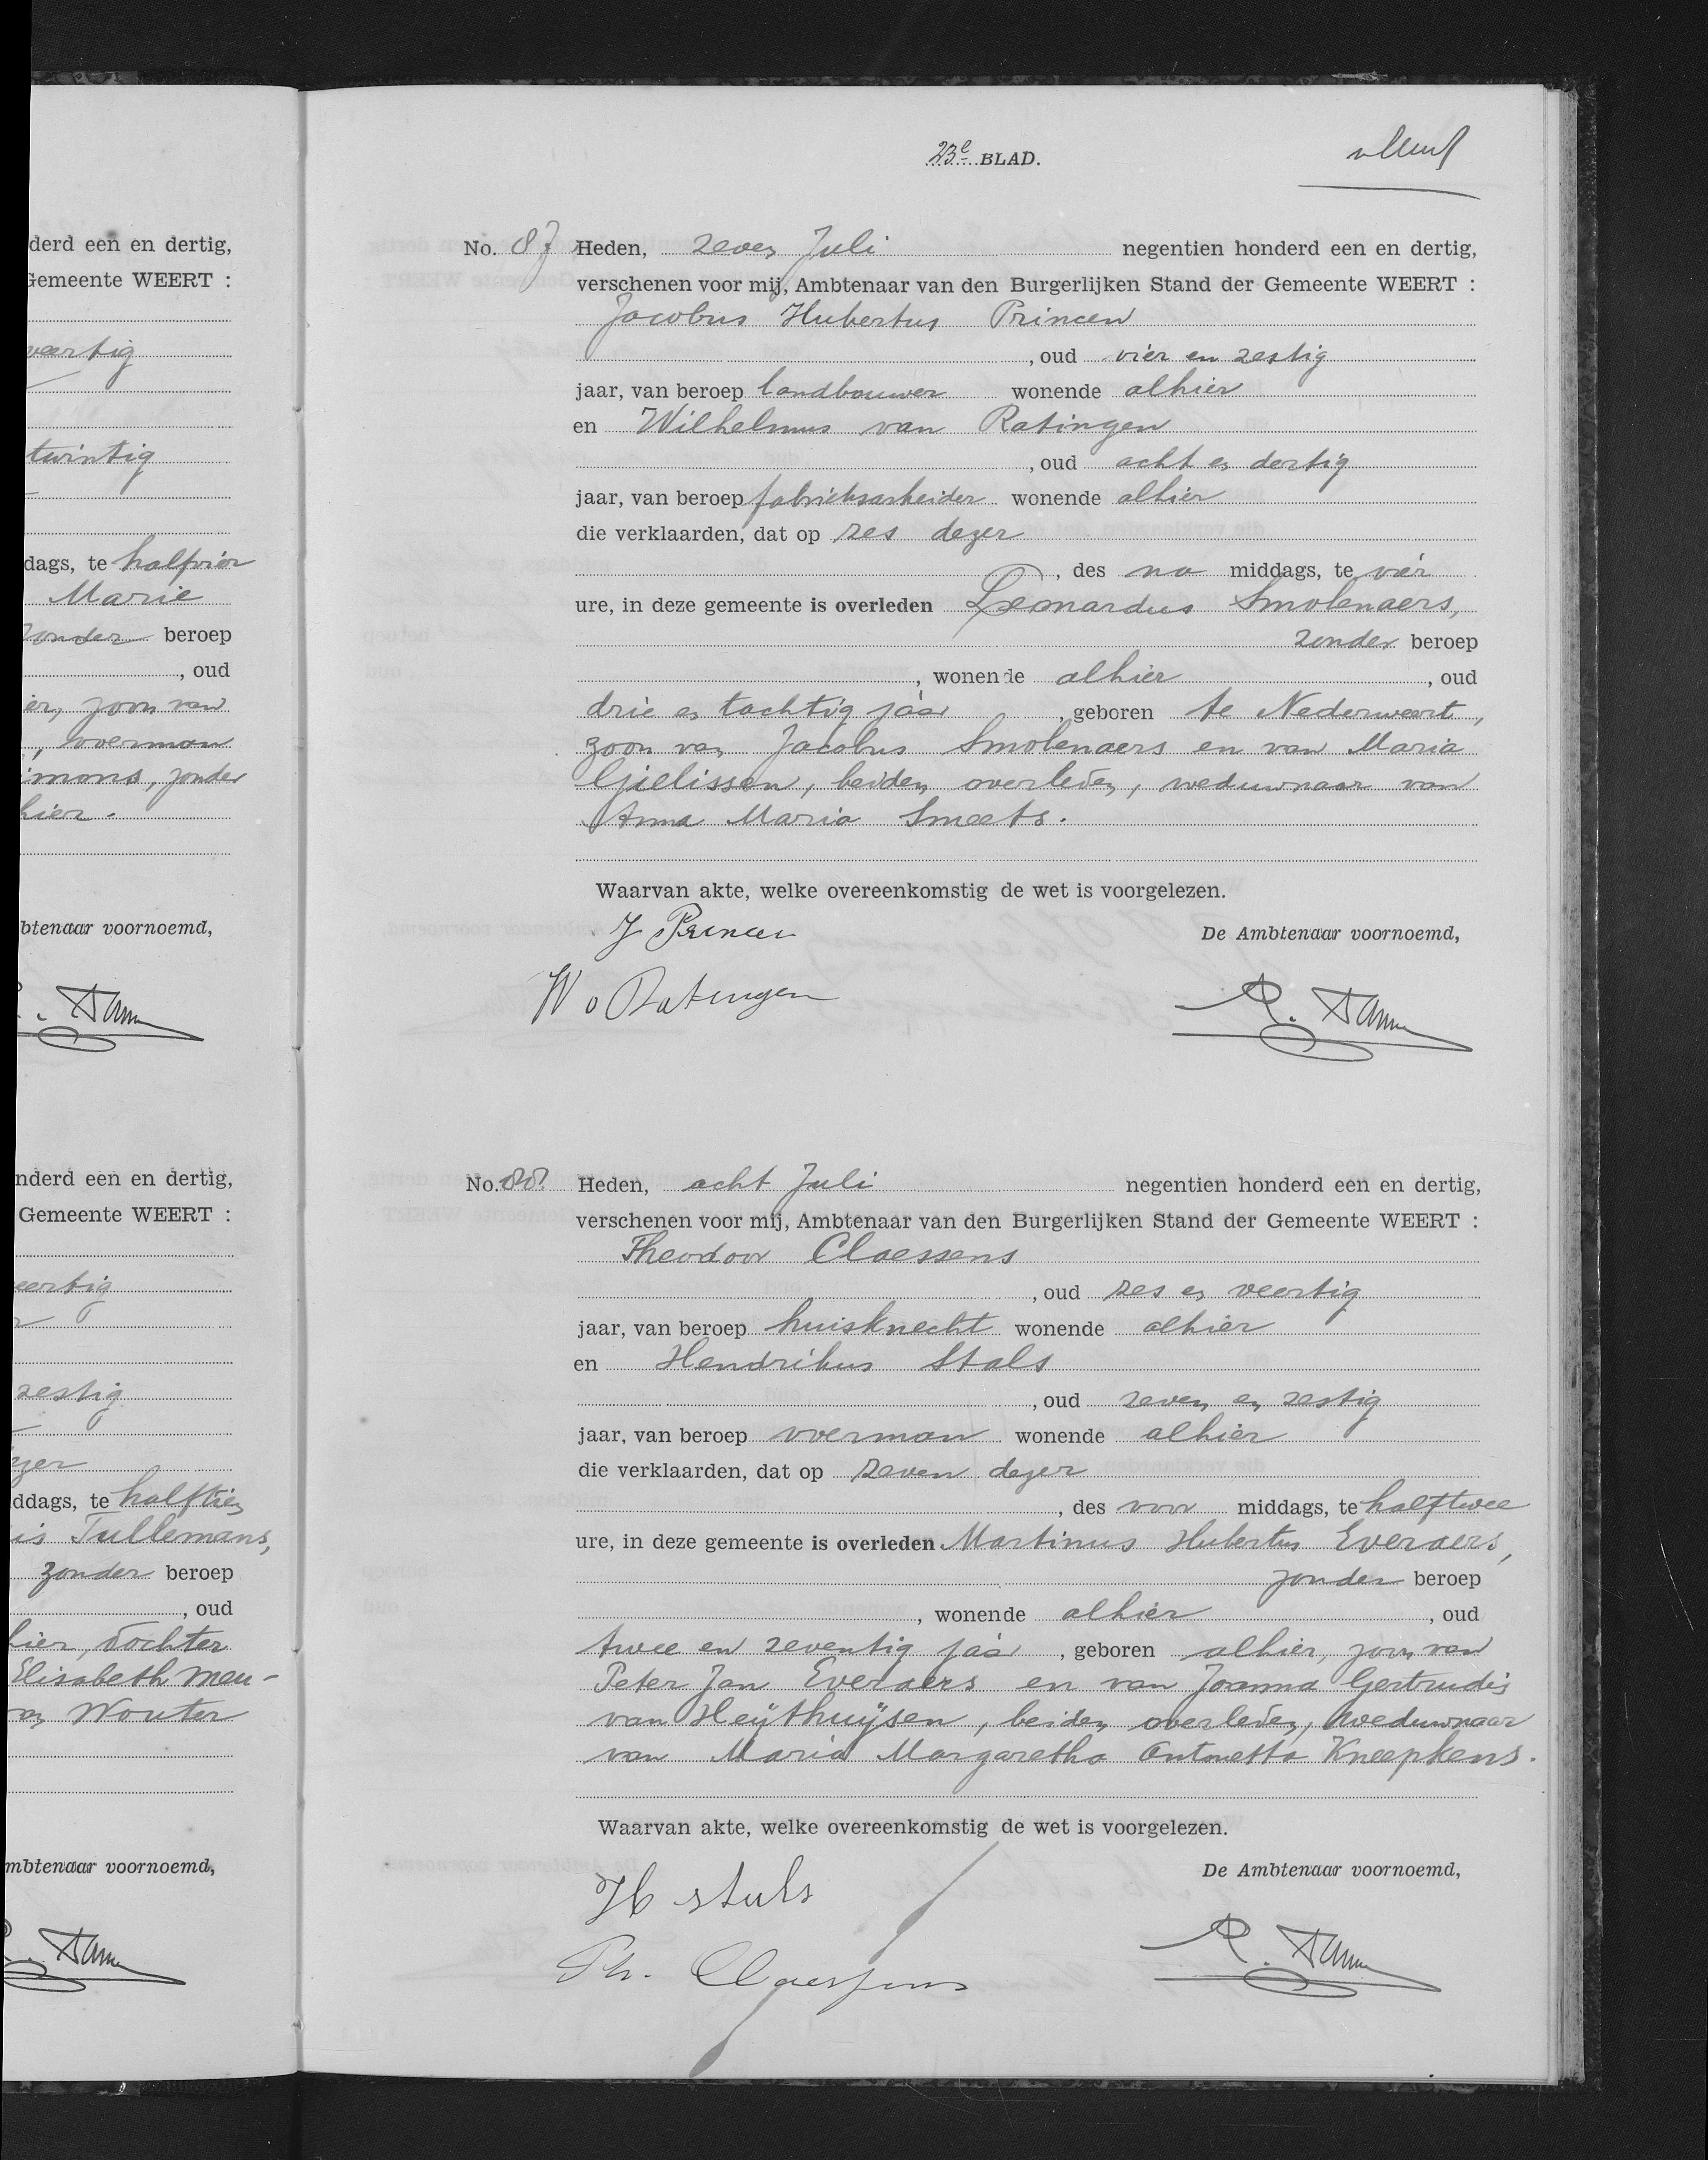 derd een en dertig,
Gemeente WEERT :
veertig
twintig
dags, te halfvier
Marie
zonder beroep
, oud
ier, zoon van
, voerman
imons, zonder
hier.
btenaar voornoemd,
nderd een en dertig,
Gemeente WEERT :
eertig
zestig
zer
ddags, te halftien
is Tullemans,
zonder beroep
, oud
hier, dochter
Elisabeth Meu-
an Wouter
mbtenaar voornoemd,
23e BLAD.
No. 87 Heden, zeven Juli negentien honderd een en dertig,
verschenen voor mij, Ambtenaar van den Burgerlijken Stand der Gemeente WEERT :
Jacobus Hubertus Princen
, oud vier en zestig
jaar, van beroep landbouwer wonende alhier
en Wilhelmus van Ratingen
, oud acht en dertig
jaar, van beroep fabrieksarbeider wonende alhier
die verklaarden, dat op zes dezer
, des na middags, te vier
ure, in deze gemeente is overleden Leonardus Smolenaers,
zonder beroep
, wonende alhier , oud
drie en tachtig jaar , geboren te Nederweert,
zoon van Jacobus Smolenaers en van Maria
Gielissen, beiden overleden, weduwnaar van
Anna Maria Smeets.
Waarvan akte, welke overeenkomstig de wet is voorgelezen.
J Princen
De Ambtenaar voornoemd,
W v Ratingen
No. 88 Heden, acht Juli negentien honderd een en dertig,
verschenen voor mij, Ambtenaar van den Burgerlijken Stand der Gemeente WEERT :
Theodoor Claessens
, oud zes en veertig
jaar, van beroep huisknecht wonende alhier
en Hendrikus Stals
, oud zeven en zestig
jaar, van beroep voerman wonende alhier
die verklaarden, dat op zeven dezer
, des voor middags, te halftwee
ure, in deze gemeente is overleden Martinus Hubertus Everaers,
zonder beroep
, wonende alhier , oud
twee en zeventig jaar , geboren alhier, zoon van
Peter Jan Everaers en van Joanna Gertrudis
van Heijthuijsen, beiden overleden, weduwnaar
van Maria Margaretha Antonetta Kneepkens.
Waarvan akte, welke overeenkomstig de wet is voorgelezen.
De Ambtenaar voornoemd,
H stals
Th. Claessens